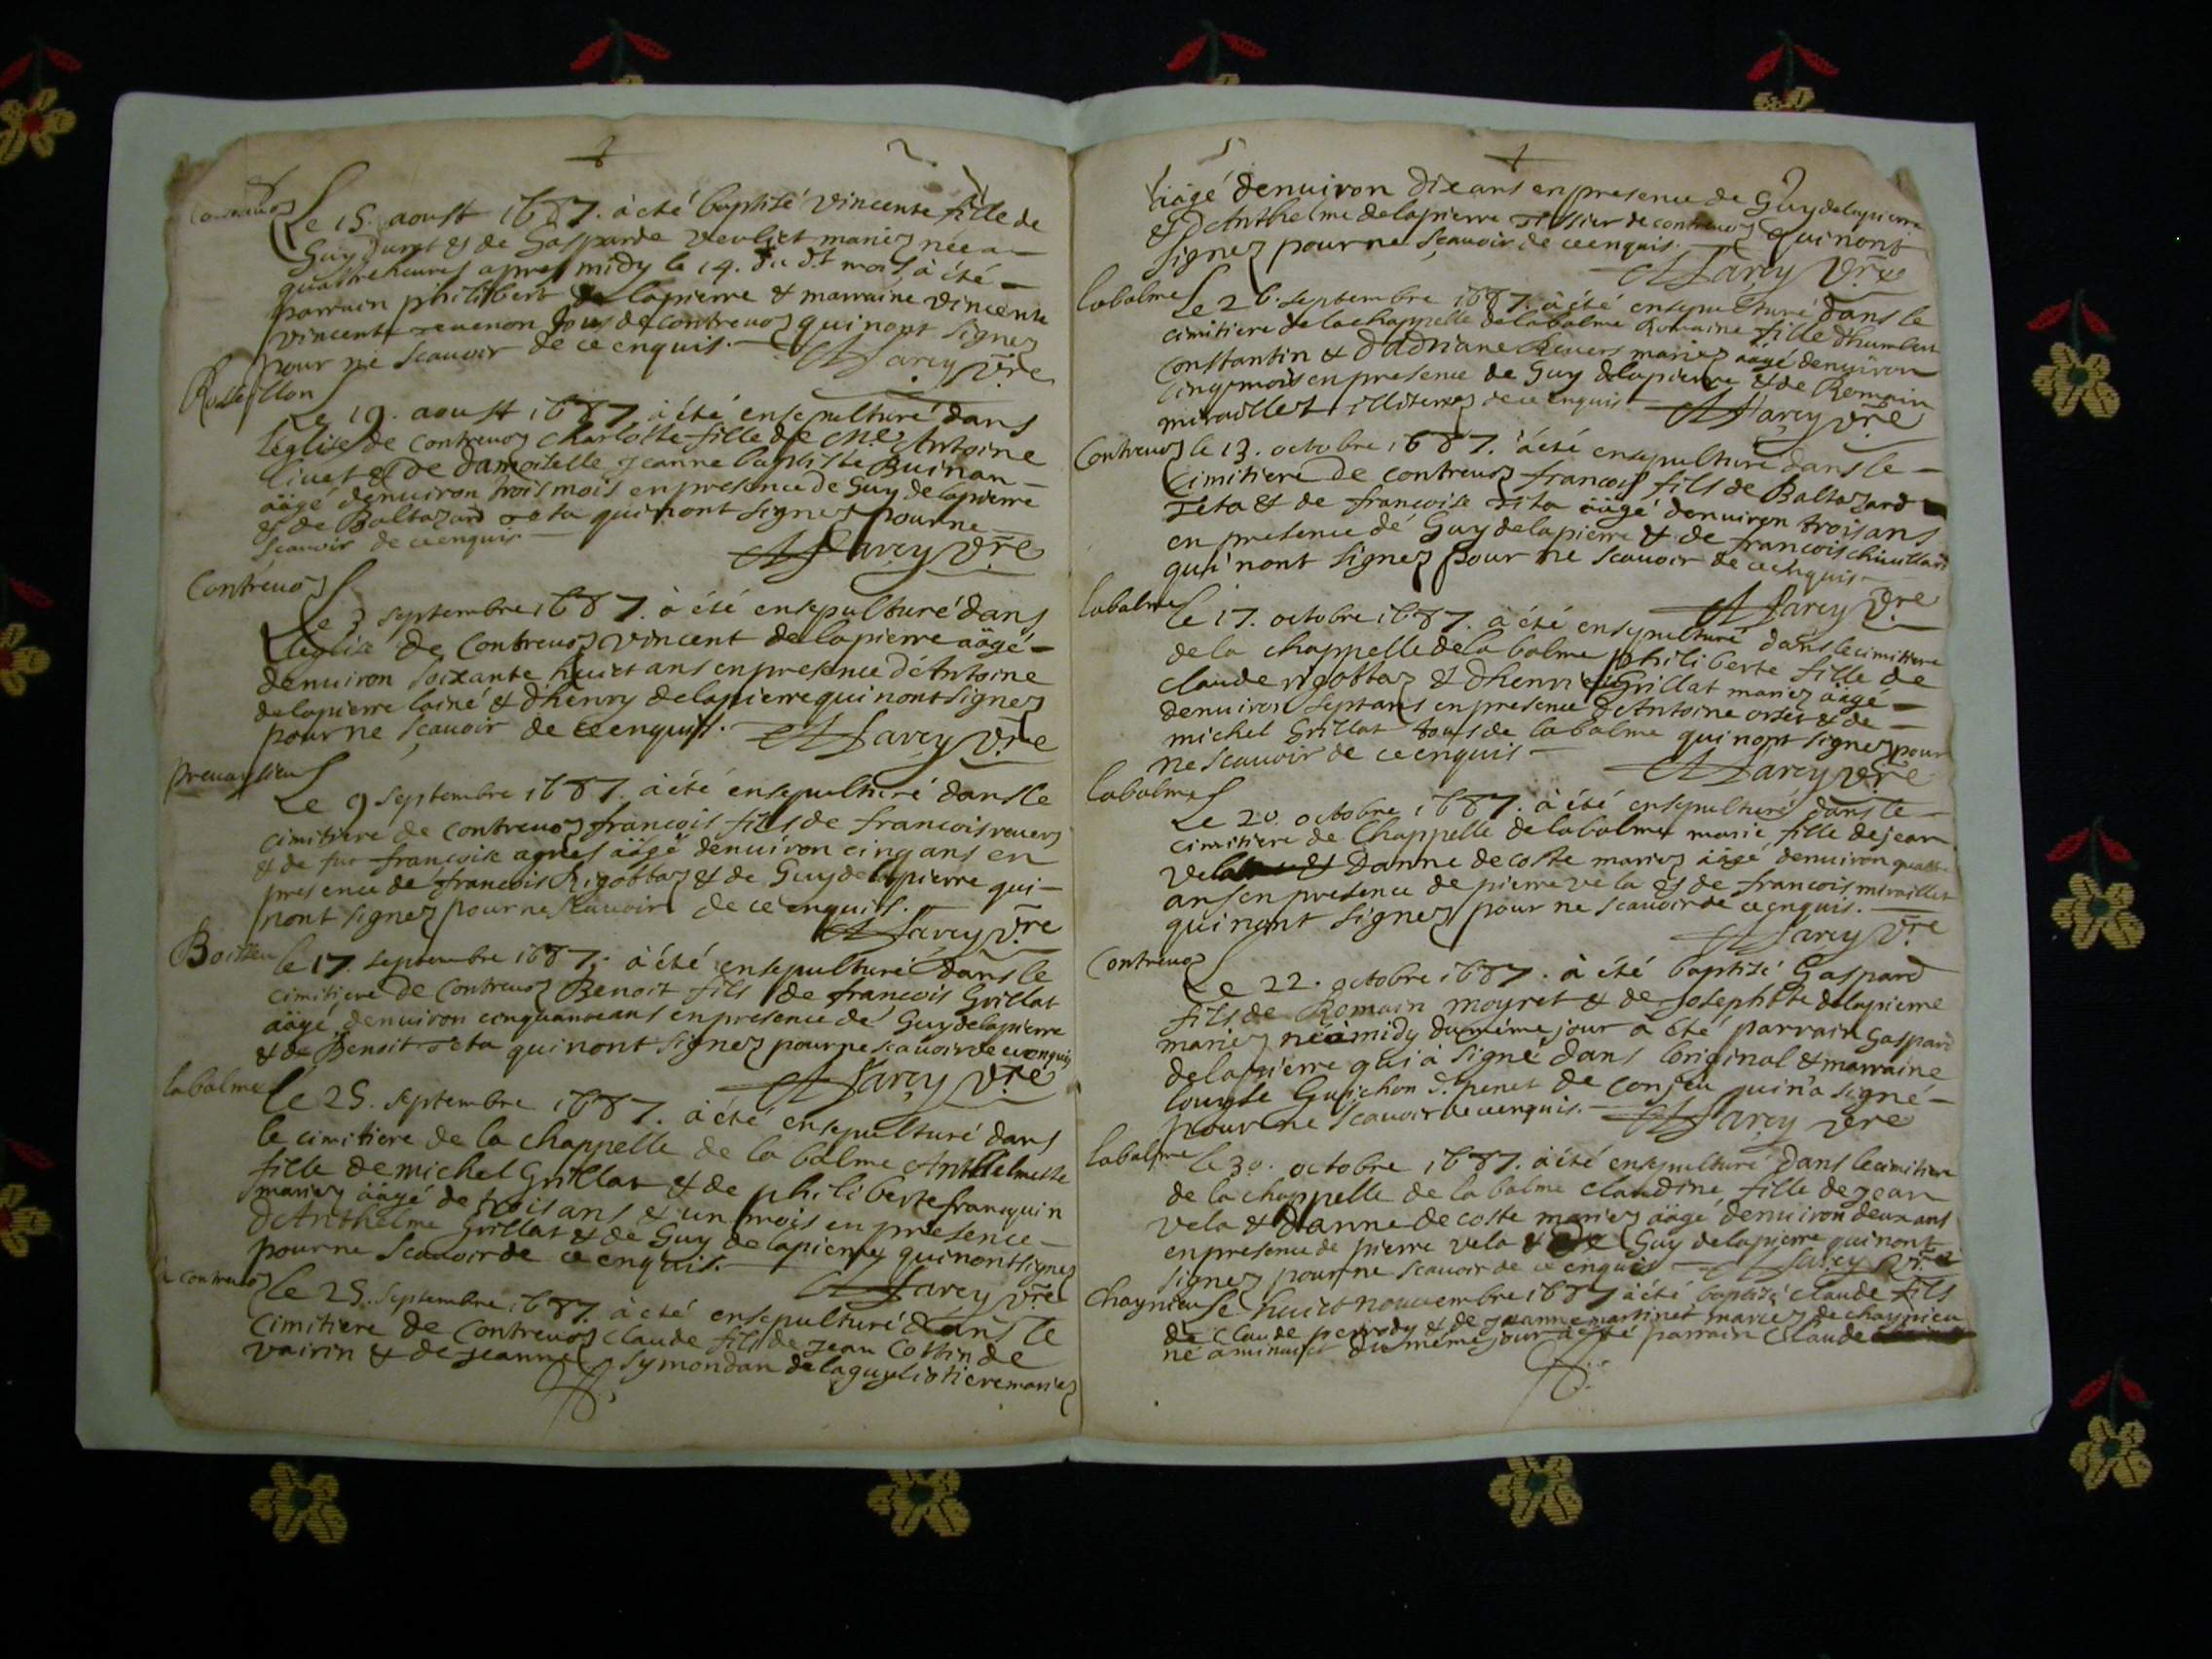 Contrevoz
Le 15. aoust 1687. à été baptisé vincente fille de
Guy et de Gasparde mariez née a
quattre heures apres midy le 14. du dt mois, à été
parrain philibert de lapierre & marraine vincente
vincente tous de contrevoz qui nont signez
pour ne scauoir de ce enquis.
Rossillon
Le 19. aoust 1687 à été ensepulturé dans
léglise de contrevoz charlotte fille de Antoine
et de damoiselle Jeanne baptiste
äägé denuiron trois mois en presence de Guy delapierre
et de Baltazard teta qui nont signez pour ne
scauoir de ce enquis
Contrevoz
Le 3 septembre 1687. à été ensepulturé dans
léglise de Contrevoz vincent delapierre äägé
denuiron soixante huict ans en presence dAntoine
delapierre lainé & dhenry delapierre qui nont signez
pour ne scauoir de ce enquis.
Le 9 septembre 1687. à été ensepulturé dans le
cimitiere de contrevoz francois fils de francois reuerz
& de fue francoise agnes äägé denuiron cinq ans en
presence de francois Rigottaz & de Guy delapierre qui
nont signez pour ne scauoir de ce enquis.
Le 17. septembre 1687. à été ensepulturé dans le
cimitiere de Contrevoz Benoit fils de francois Grillat
äägé denuiron cinquante ans en presence de Guy delapierre
& de Benoit teta qui nont signez pour ne scauoir de ce enquis
labalme
Le 25. septembre 1687. à été ensepulturé dans
le cimitiere de la chappelle de la balme Anthelmette
fille de michel Grillat & de philiberte francquin
mariez äägé de trois ans & un mois en presence
dAnthelme Grillat & de Guy delapierre qui nont signez
pour ne scauoir de ce enquis.
contrevoz
Le 25. septembre 1687. à été ensepulturé dans le
cimitiere de Contrevoz claude fils de jean Cottin de
vairin & de jeanne symondan de laguyliotiere mariez
äägé denuiron dix ans en presence de Guy delapierre
et dAnthelme delapierre tissier de contrevoz qui nont
signez pour ne scauoir de ce enquis.
labalme
Le 26. septembre 1687. à été ensepulturé dans le
cimitiere de la chappelle de labalme Romaine fille dhumbert
Constantin & dAdriane Reuers mariez äägé denuiron
cinq mois en presence de Guy delapierre & de Romain
miraillet illiterez de ce enquis
Contrevoz
le 13. octobre 1687. à été ensepulturé dans le
Cimitiere de contrevoz francois fils de Baltazard
Teta & de francoise Tita äägé denuiron trois ans
en presence de Guy delapierre & de francois
qui nont signez pour ne scauoir de ce enquis
labalme
Le 17. octobre 1687. à été ensepulturé dans le cimitiere
de la chappelle de la balme philiberte fille de
claude rigottaz & dhenriette Grillat mariez äägé
denuiron sept ans en presence dAntoine & de
michel Grillat tous de labalme qui nont signez pour
ne scauoir de ce enquis
labalme
Le 20. octobre 1687. à été ensepulturé dans le
cimitiere de Chappelle de labalme marie fille de jean
vela & danne decoste mariez äägé denuiron quattre
ans en presence de pierre vela et de francois miraillet
qui nont signez pour ne scauoir de ce enquis.
Contrevoz
Le 22. octobre 1687. à été baptisé Gaspard
fils de Romain moyret & de Josephte delapierre
mariez né à midy du méme jour à été parrain Gaspard
delapierre qui à signé dans loriginal & marraine
louyse Guichon penet de qui n'a signé
pour ne scauoir de ce enquis.
labalme
Le 30. octobre 1687. à été ensepulturé dans le cimitiere
de la chappelle de la balme claudine fille de jean
vela & danne decoste mariez äägé denuiron deux ans
en presence de pierre vela & de Guy delapierre qui nont
signez pour ne scauoir de ce enquis
Chaynieu
Le huict nouuembre 1687 à été baptisé claude fils
de Claude & de jeanne martinet mariez de chaynieu
né a minuict du méme jour à été parrain Claude